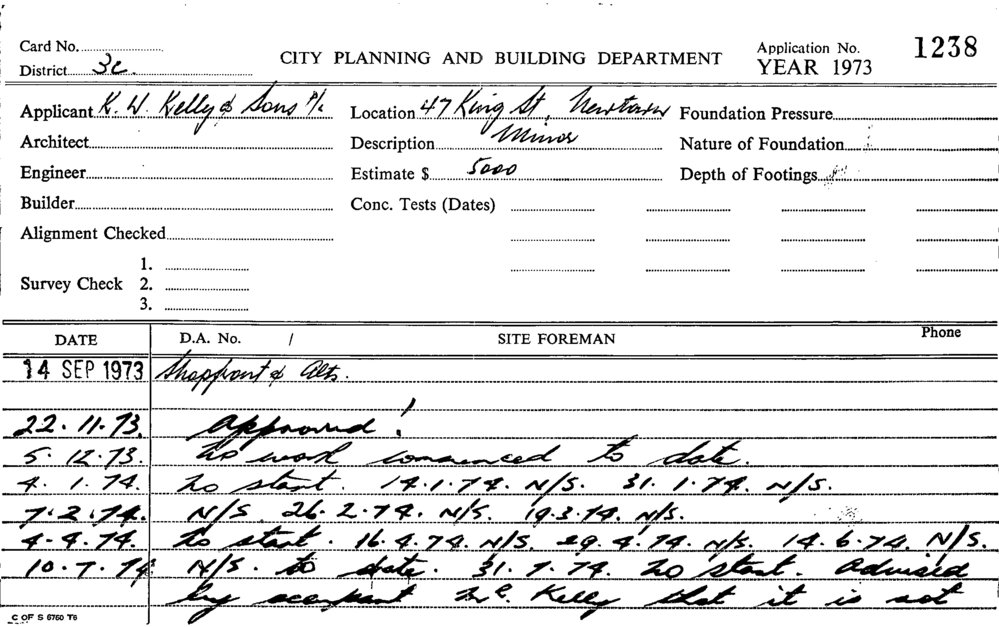 Card No. CITY PLANNING AND BUILDING DEPARTMENT Application No. 1238
District 3c. YEAR 1973
Applicant K. W. Kelly & Sons P/L Location 47 King St, Newtown Foundation Pressure
Architect Description Minor Nature of Foundation
Engineer Estimate $ 5000 Depth of Footings
Builder Conc. Tests (Dates)
Alignment Checked
1.
Survey Check 2.
3.
DATE D.A. No. / SITE FOREMAN Phone
14 SEP 1973 Shopfront & Alts.
22.11.73. Approved!
5.12.73. No work commenced to date.
4.1.74. No start. 14.1.74. N/S. 31.1.74. N/S.
7.2.74. N/S. 26.2.74. N/S. 19.3.74. N/S.
4.4.74. No start. 16.4.74. N/S. 29.4.74. N/S. 14.6.74. N/S.
10.7.74. N/S. to date. 31.7.74. No start. Advised
by occupant Mr. Kelly that it is not
C OF S 6750 T6